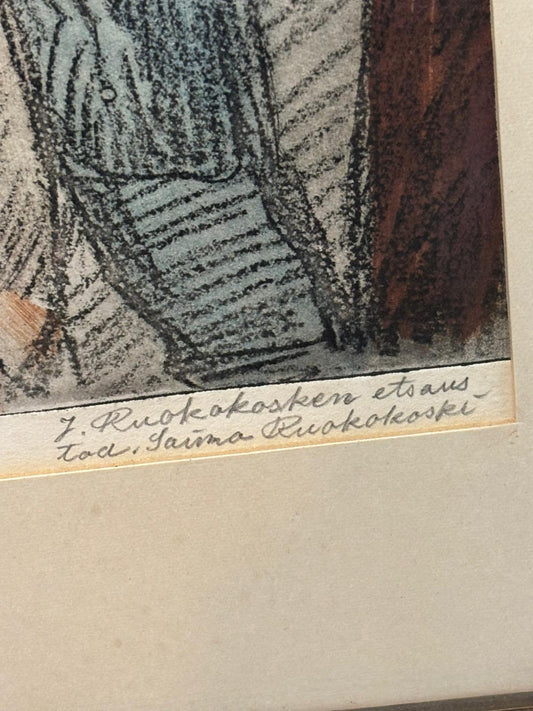 J. Ruokokosken etsaus
tod. Saima Ruokokoski